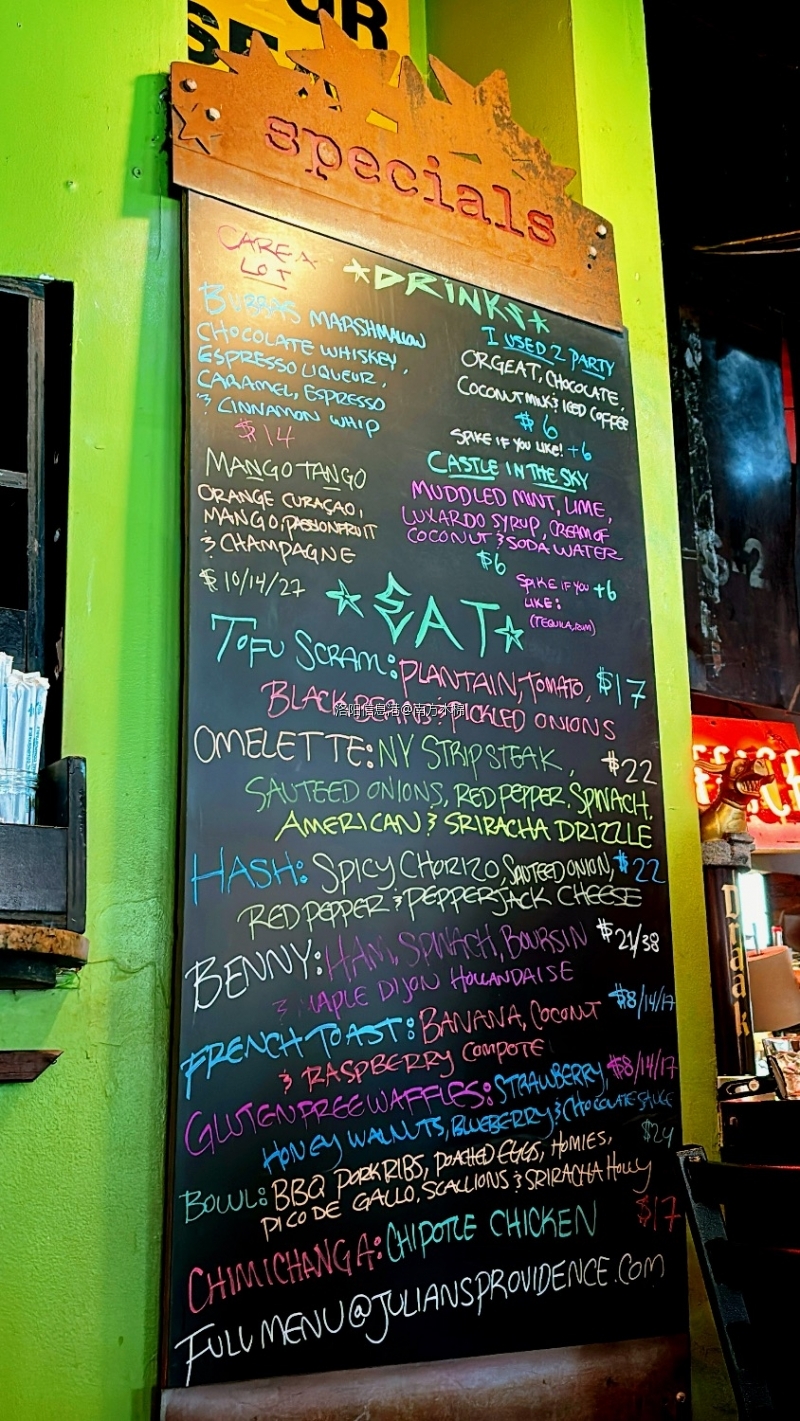 OUR
SE
specials
CARE A
LOT
★DRINKS★
BUBBAS MARSHMALLOW
CHOCOLATE WHISKEY,
ESPRESSO LIQUEUR,
CARAMEL, ESPRESSO
& CINNAMON WHIP
$14
MANGO TANGO
ORANGE CURAÇAO,
MANGO, PASSIONFRUIT
& CHAMPAGNE
$10/14/27
I USED 2 PARTY
ORGEAT, CHOCOLATE,
COCONUT MILK & ICED COFFEE
$6
SPIKE IF YOU LIKE! +6
CASTLE IN THE SKY
MUDDLED MINT, LIME,
LUXARDO SYRUP, CREAM OF
COCONUT & SODA WATER
$6
SPIKE IF YOU +6
LIKE:
(TEQUILA, RUM)
★EAT★
TOFU SCRAM: PLANTAIN, TOMATO, $17
BLACK BEANS & PICKLED ONIONS
洛阳信息港@南方木棉
OMELETTE: NY STRIP STEAK, $22
SAUTEED ONIONS, RED PEPPER, SPINACH,
AMERICAN & SRIRACHA DRIZZLE
HASH: SPICY CHORIZO, SAUTEED ONION, $22
RED PEPPER & PEPPERJACK CHEESE
BENNY: HAM, SPINACH, BOURSIN $21/38
& MAPLE DIJON HOLLANDAISE
FRENCH TOAST: BANANA, COCONUT $8/14/17
& RASPBERRY COMPOTE
GLUTENFREE WAFFLES: STRAWBERRY, $8/14/17
HONEY WALNUTS, BLUEBERRY & CHOCOLATE SAUCE
$24
BOWL: BBQ PORK RIBS, POACHED EGGS, HOMIES,
PICO DE GALLO, SCALLIONS & SRIRACHA HOLLY
CHIMICHANGA: CHIPOTLE CHICKEN $17
FULL MENU @ JULIANSPROVIDENCE.COM
Draak